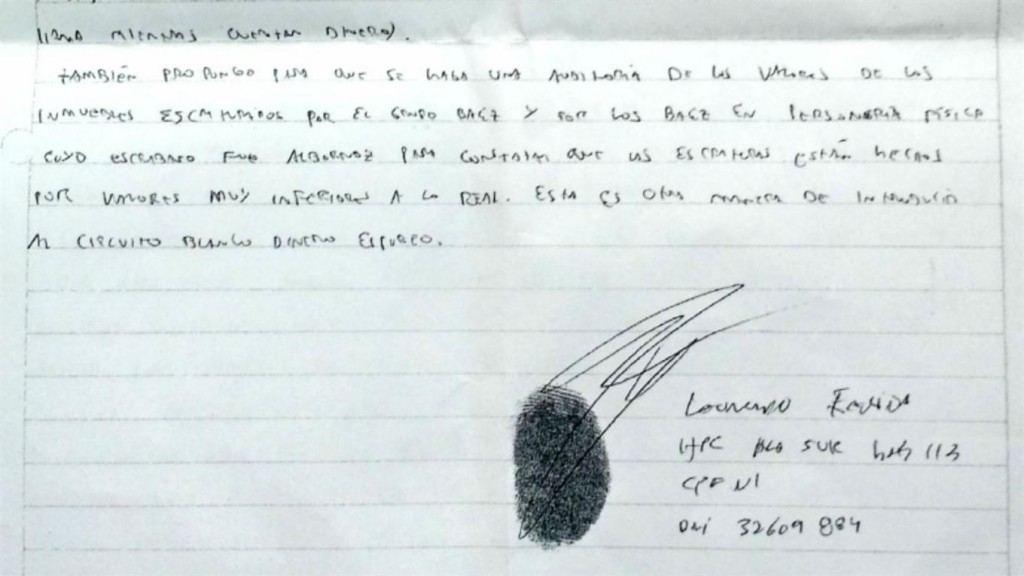 mientras cuentan dinero).
también propongo para que se haga una auditoría de los valores de los
inmuebles escriturados por el Grupo Baez y por los Baez en personería física
cuyo escribano fue Albornoz para constatar que las escrituras están hechas
por valores muy inferiores a lo real. Esta es otra manera de introducir
al circuito blanco dinero espureo.
HPC 113
CPF N1
DNI 32609 884